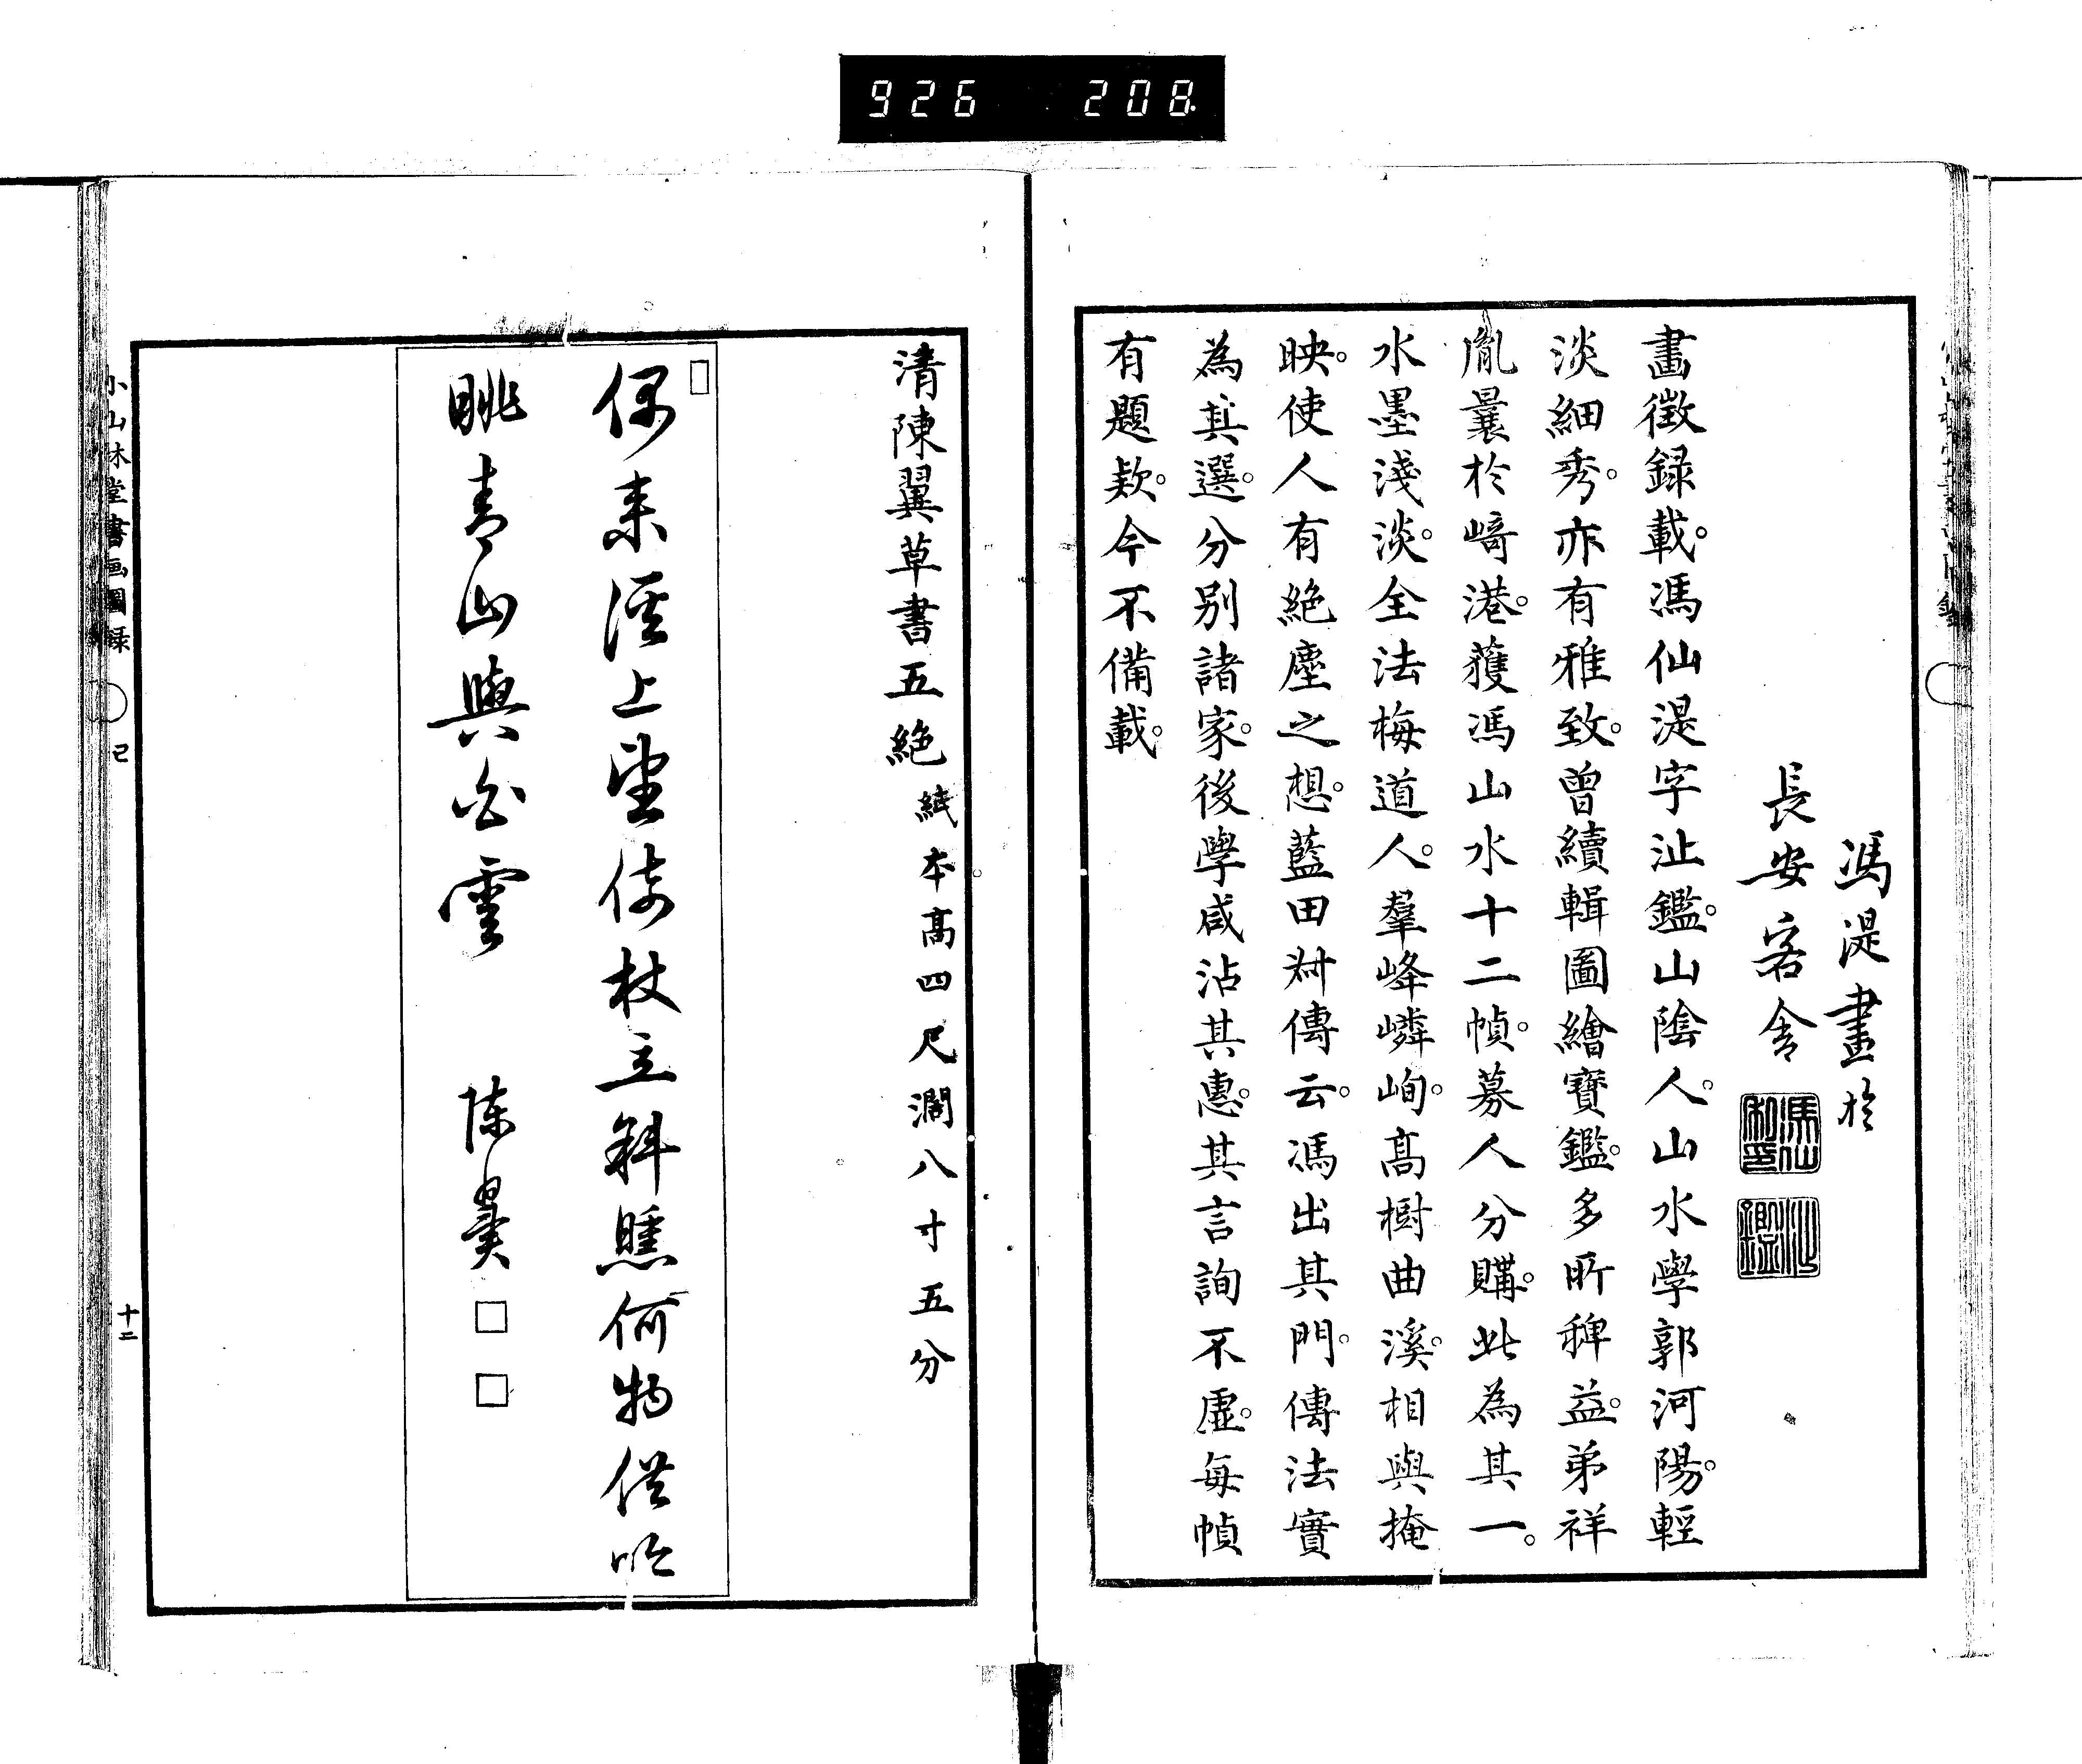 926 208
馮湜畫於
長安客舍
馮仙湜印
沚鑑
畫徵録載。馮仙湜字沚鑑。山陰人。山水學郭河陽。輕
淡細秀。亦有雅致。曾續輯圖繪寶鑑。多所稗益。弟祥
胤曩於﨑港。獲馮山水十二幀。募人分購。此為其一。
水墨淺淡。全法梅道人。羣峰嶙峋。高樹曲溪。相與掩
映。使人有絕塵之想。藍田叔傳云。馮出其門。傳法實
為其選。分別諸家。後學咸沾其惠。其言詢不虛。每幀
有題款。今不備載。
清陳翼草書五絕 紙本高四尺濶八寸五分
偶来溪上望倚杖立斜曛何物供吟
眺青山與白雲 陈翼
小山林堂書画圖録 巳 十二